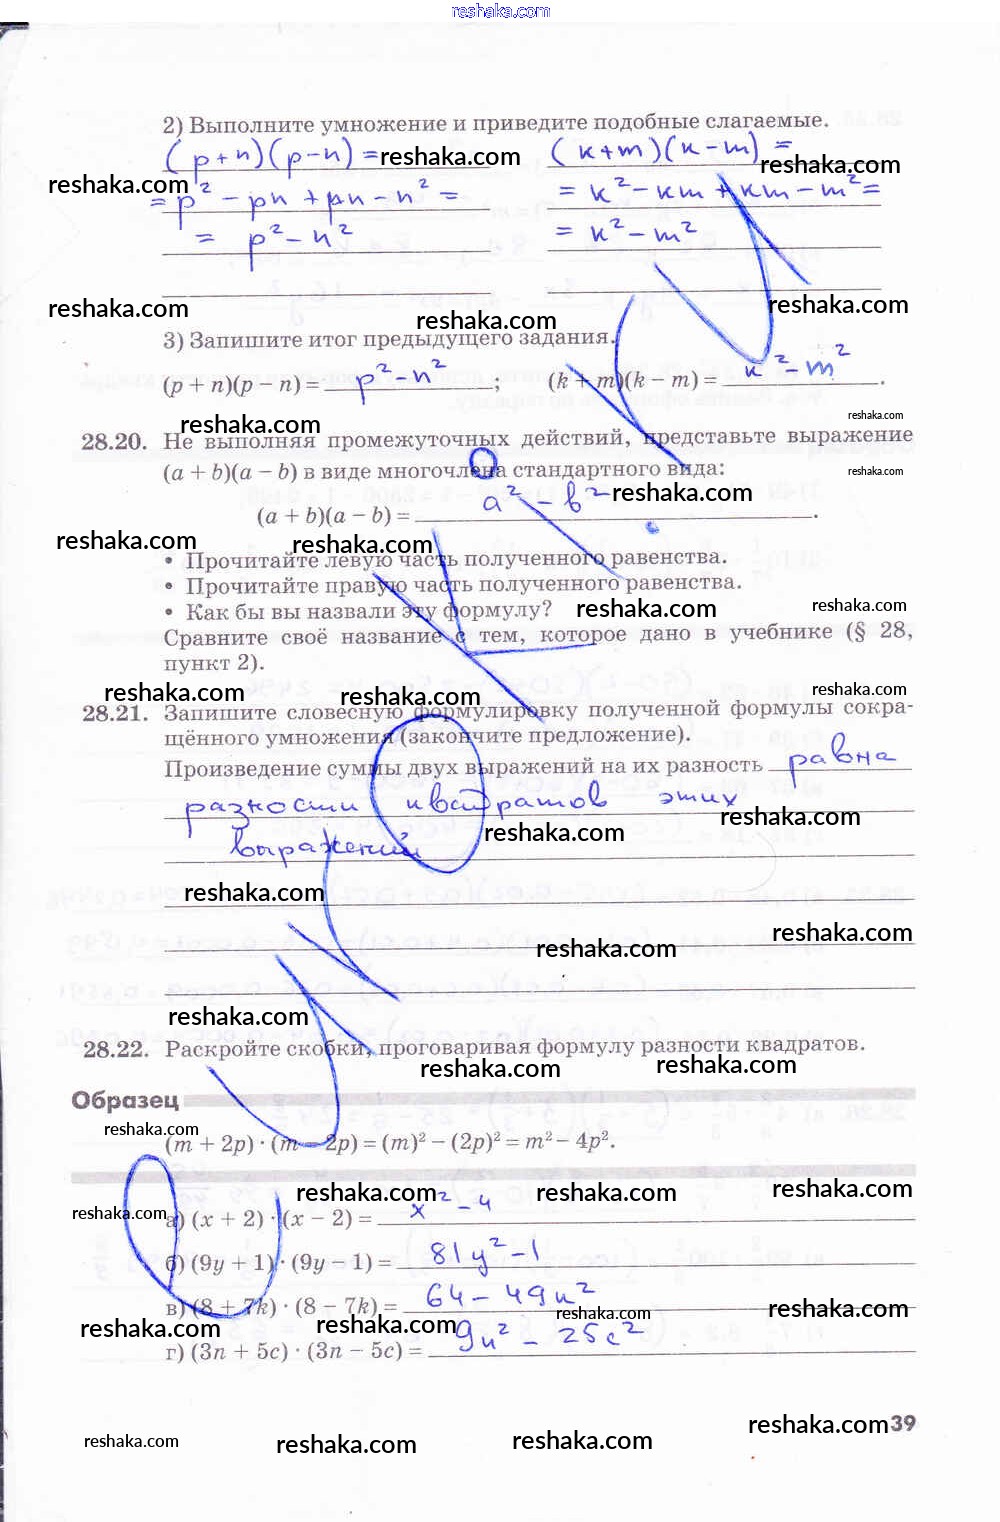 reshaka.com
2) Выполните умножение и приведите подобные слагаемые.
(p+n)(p-n) = reshaka.com (к+m)(к-m) =
reshaka.com reshaka.com
= p² - pn + pn - n² = = к² - км + км - m² =
= p² - n² = к² - m²
reshaka.com reshaka.com reshaka.com
3) Запишите итог предыдущего задания.
(p + n)(p − n) = p² - n² ; (k + m)(k − m) = к² - m² .
reshaka.com reshaka.com
28.20. Не выполняя промежуточных действий, представьте выражение
(a + b)(a − b) в виде многочлена стандартного вида: reshaka.com
(a + b)(a − b) = a² - b² reshaka.com .
reshaka.com reshaka.com
• Прочитайте левую часть полученного равенства.
• Прочитайте правую часть полученного равенства.
• Как бы вы назвали эту формулу? reshaka.com reshaka.com
Сравните своё название с тем, которое дано в учебнике (§ 28,
пункт 2).
reshaka.com reshaka.com reshaka.com
28.21. Запишите словесную формулировку полученной формулы сокра-
щённого умножения (закончите предложение).
Произведение суммы двух выражений на их разность равна
разности квадратов этих
reshaka.com reshaka.com
выражений
reshaka.com
reshaka.com reshaka.com
reshaka.com
28.22. Раскройте скобки, проговаривая формулу разности квадратов.
reshaka.com reshaka.com
Образец
reshaka.com
(m + 2p) · (m − 2p) = (m)² − (2p)² = m² − 4p².
reshaka.com reshaka.com reshaka.com
reshaka.com
а) (x + 2) · (x − 2) = x² - 4
б) (9y + 1) · (9y − 1) = 81y² - 1
в) (8 + 7k) · (8 − 7k) = 64 - 49к²
reshaka.com reshaka.com reshaka.com reshaka.com
г) (3n + 5c) · (3n − 5c) = 9n² - 25c²
reshaka.com reshaka.com reshaka.com reshaka.com
39